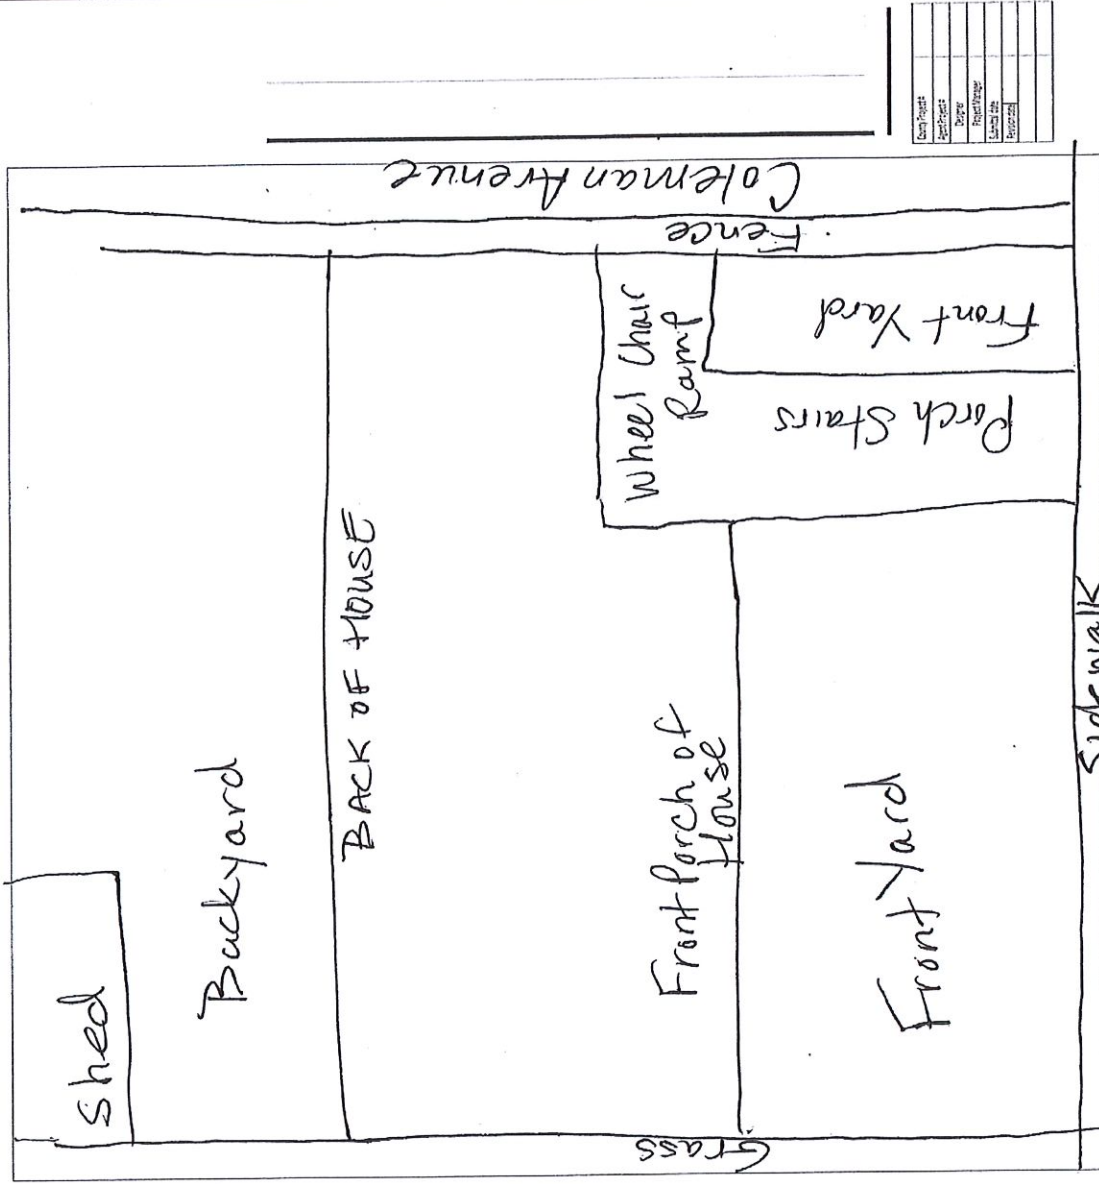 County Project #
Agent Project #
Designer
Project Manager
Submittal date
Revision date
Coleman Avenue
Fence
Front Yard
Porch Stairs
Wheel Chair
Ramp
BACK OF HOUSE
Backyard
Shed
Front Porch of
House
Front Yard
Sidewalk
Grass